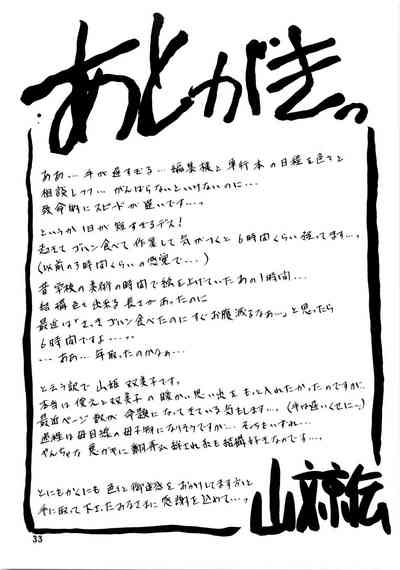 あとがきっ
ああ…手が遅すぎる…編集様と単行本の日程を色々と
相談しつつ…がんばらないといけないのに…
致命的にスピードが遅いです…。
というか1日が短すぎるデス!
起きてゴハン食べて作業して気がつくと6時間くらい経ってます…。
(以前の3時間くらいの感覚で…)
昔学校の美術の時間で絵を上げていたあの1時間…
結構色々出来る長さがあったのに
最近は「さっきゴハン食べたのにすぐお腹減るなぁ…」と思ったら
6時間ですよ…
…ああ…年取ったのかなぁ…
と云う訳で山
双美子です。
本当は
双美子の
思い出をもっと入れたかったのですが、
最近ページ数が
になってきている気もします…。(手は遅いくせに~)
母目線の母子物になりそうですが…そちらもいずれ…
やんちゃな
結構好きなのです…。
とにもかくにも色々と御迷惑をおかけしてます方々と
手に取って下さったみなさまに感謝を込めて…。
33